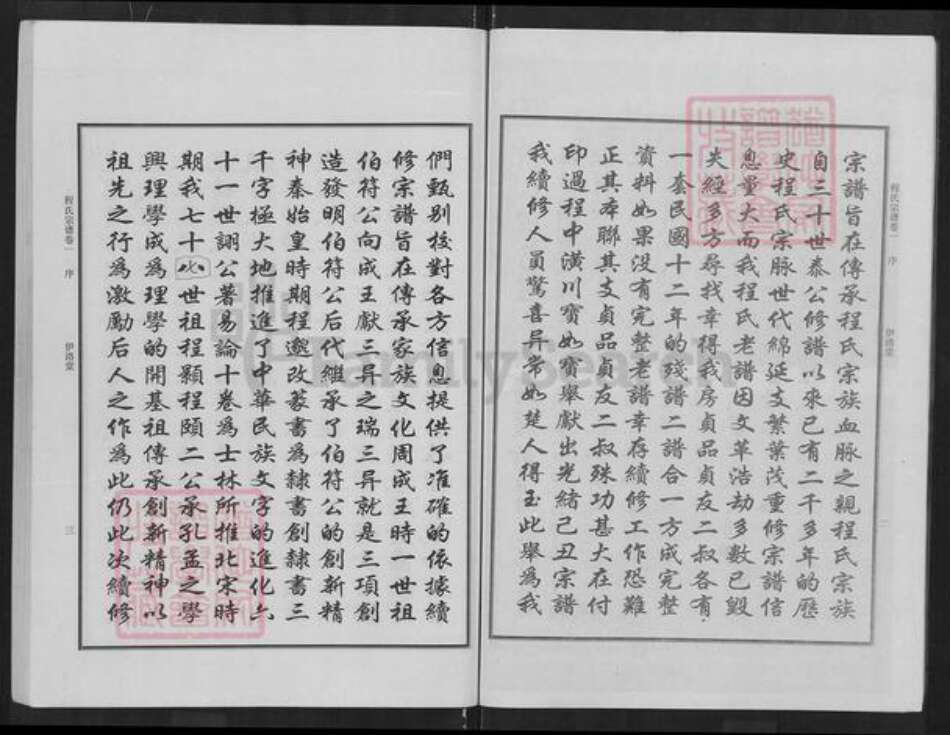 程氏宗譜卷一 序 伊洛堂 二
宗譜旨在傳承程氏宗族血脉之親程氏宗族
自三十世泰公修譜以來已有二千多年的歷
史程氏宗脉世代綿延支繁葉茂重修宗譜信
息量大而我程氏老譜因文革浩劫多數已毀
失經多方尋找幸得我房貞品貞友二叔各有
一套民國十二年的殘譜二譜合一方成完整
資料如果没有完整老譜幸存續修工作恐難
正其本聯其支貞品貞友二叔殊功甚大在付
印過程中潢川寳如寳舉獻出光緒己丑宗譜
我續修人員驚喜异常如楚人得玉此舉為我
們甄别校對各方信息提供了准確的依據續
修宗譜旨在傳承家族文化周成王時一世祖
伯符公向成王獻三异之瑞三异就是三項創
造發明伯符公后代繼承了伯符公的創新精
神秦始皇時期程邈改篆書為隸書創隸書三
千字極大地推進了中華民族文字的進化六
十一世詡公著易論十卷為士林所推北宋時
期我七十八世祖程顥程頤二公承孔孟之學
興理學成為理學的開基祖傳承創新精神以
祖先之行為激勵后人之作為此仍此次續修
程氏宗譜卷一 序 伊洛堂 三
FamilySearch